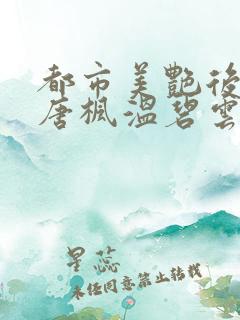 都市美艷後
唐楓溫碧雲
星蕊
未任同意禁止转载